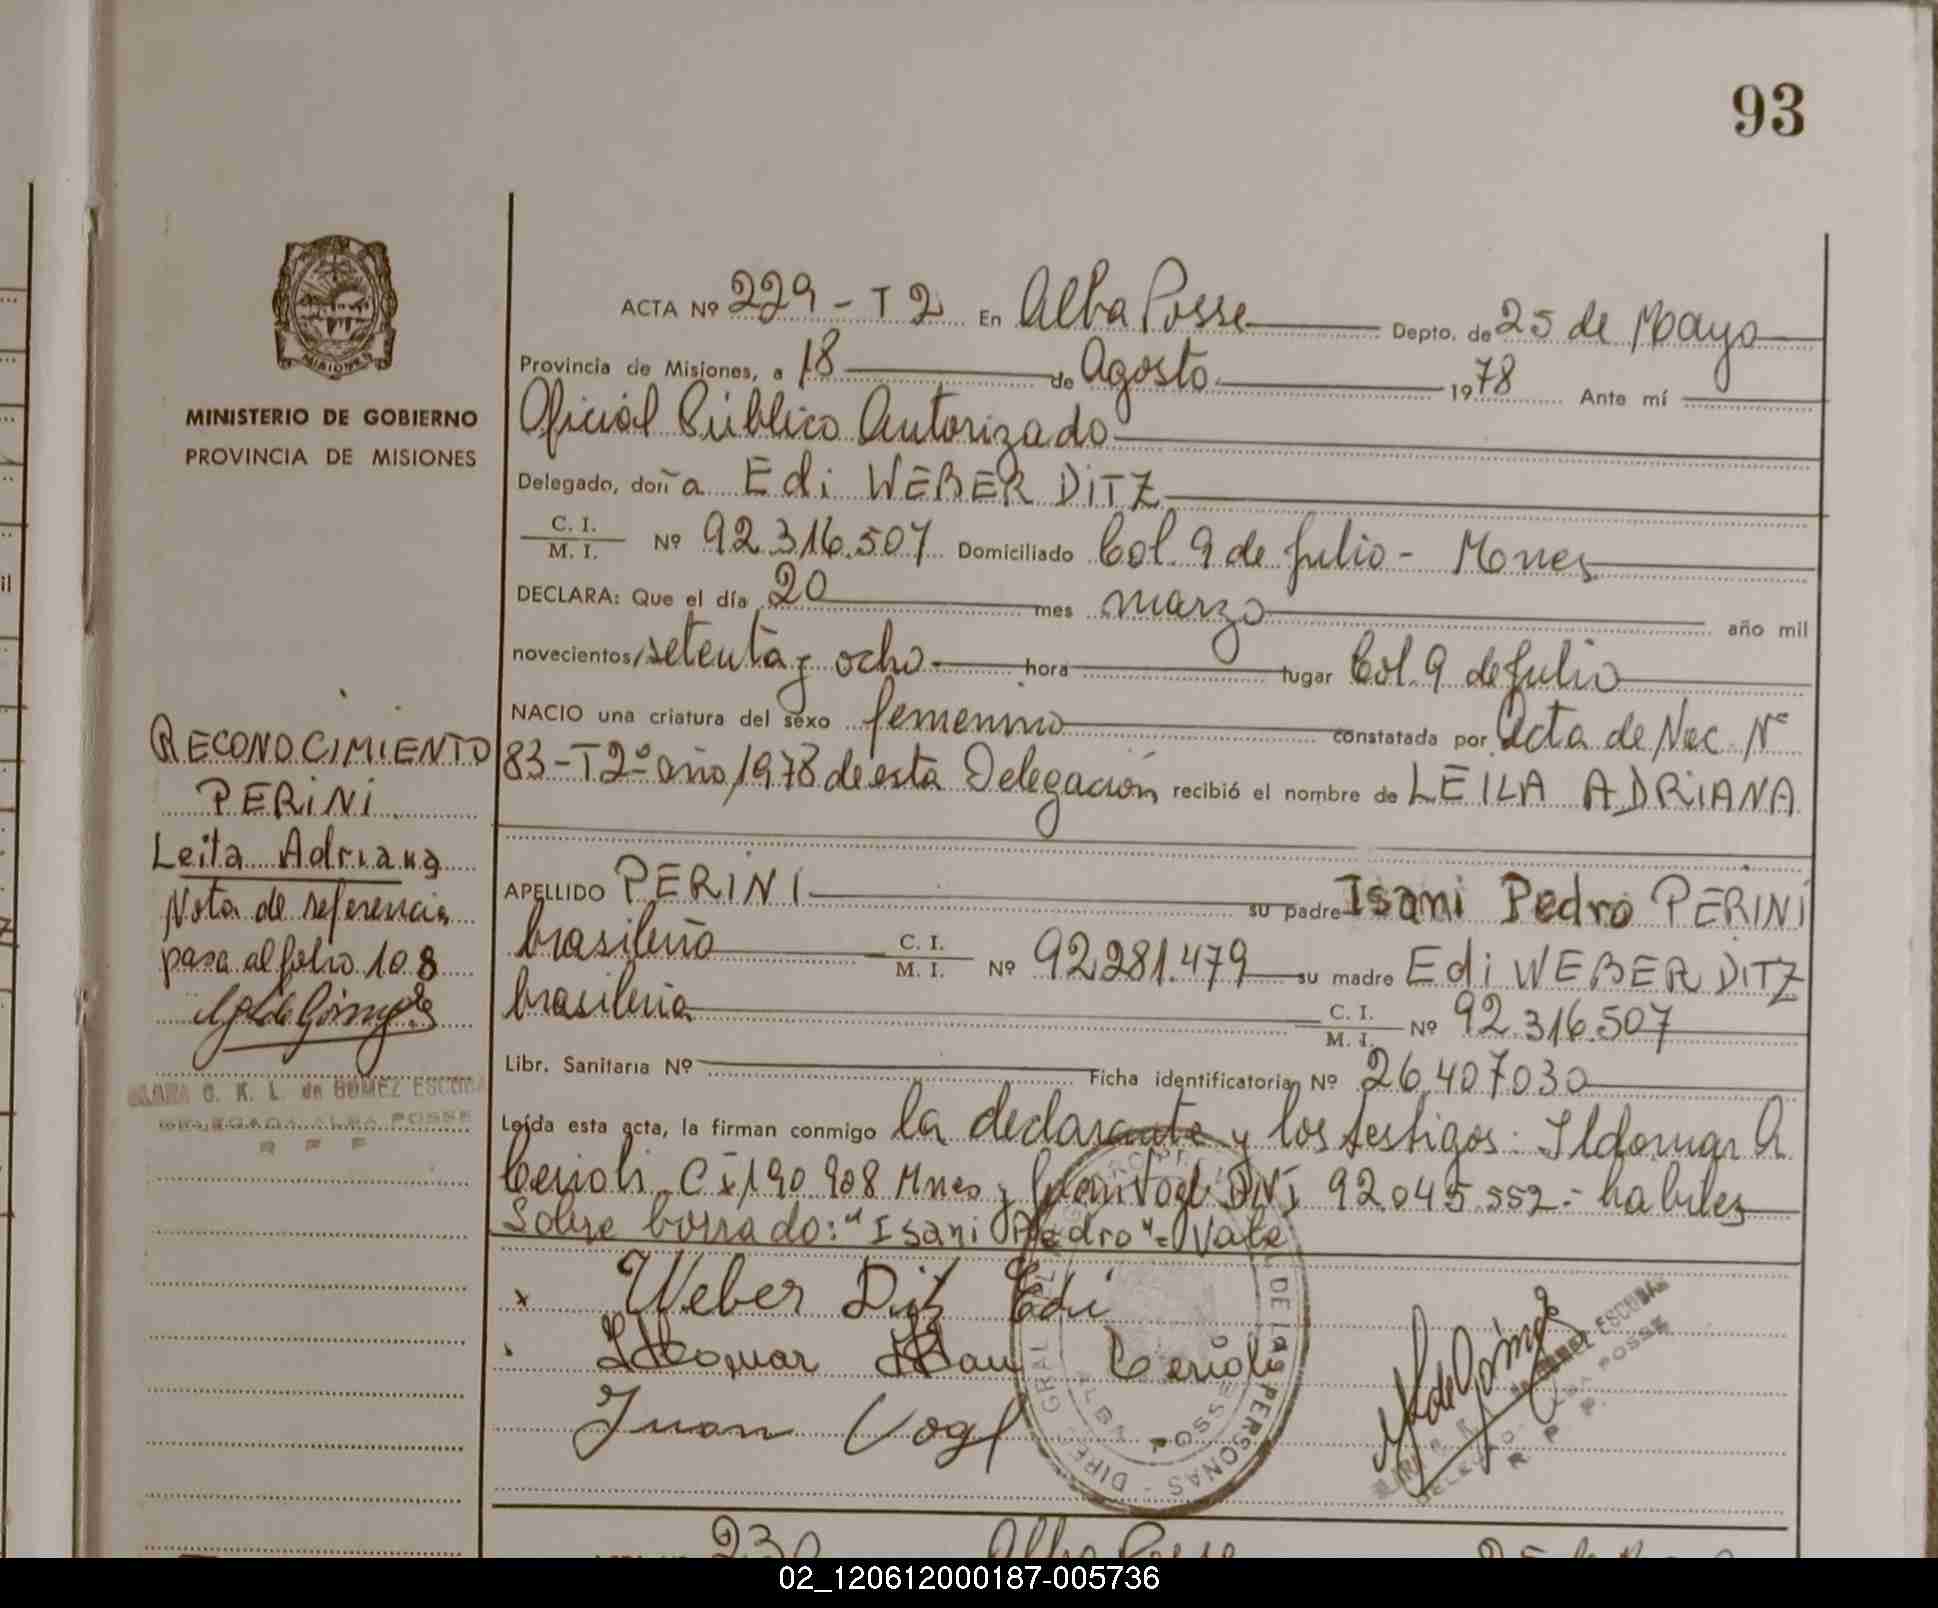 93
MINISTERIO DE GOBIERNO
PROVINCIA DE MISIONES
RECONOCIMIENTO
PERINI
Leita Adriana
Nota de referencia
pasa al folio 108
G. K. L. de GOMEZ ESCOBAR
DELEGADA ALBA POSSE
R P P
ACTA Nº 229 - T 2 En Alba Posse Depto. de 25 de Mayo
Provincia de Misiones, a 18 de Agosto 1978 Ante mí
Oficial Público Autorizado
Delegado, doña Edi WEBER DITZ
C. I. / M. I. Nº 92.316.507 Domiciliado Col. 9 de Julio - Mnes
DECLARA: Que el día 20 mes marzo año mil
novecientos setenta y ocho hora lugar Col. 9 de Julio
NACIO una criatura del sexo femenino constatada por Acta de Nac. Nº
83-T2º año 1978 de esta Delegación recibió el nombre de LEILA ADRIANA
APELLIDO PERINI su padre Isani Pedro PERINI
brasileño C. I. / M. I. Nº 92.281.479 su madre Edi WEBER DITZ
brasileña C. I. / M. I. Nº 92.316.507
Libr. Sanitaria Nº Ficha identificatoria Nº 26.407030
Leída esta acta, la firman conmigo la declarante y los testigos: Ildomar A.
Cerioli CI 190 908 Mnes y Juan Vogl DNI 92.045.552.- habiles
Sobre borrado: "Isani Pedro" = Vale
x Weber Ditz Edi
Ildomar Cerioli
Juan Vogl
DE LAS PERSONAS - DIREC. GRAL
ALBA POSSE
230 Alba Posse
02_120612000187-005736